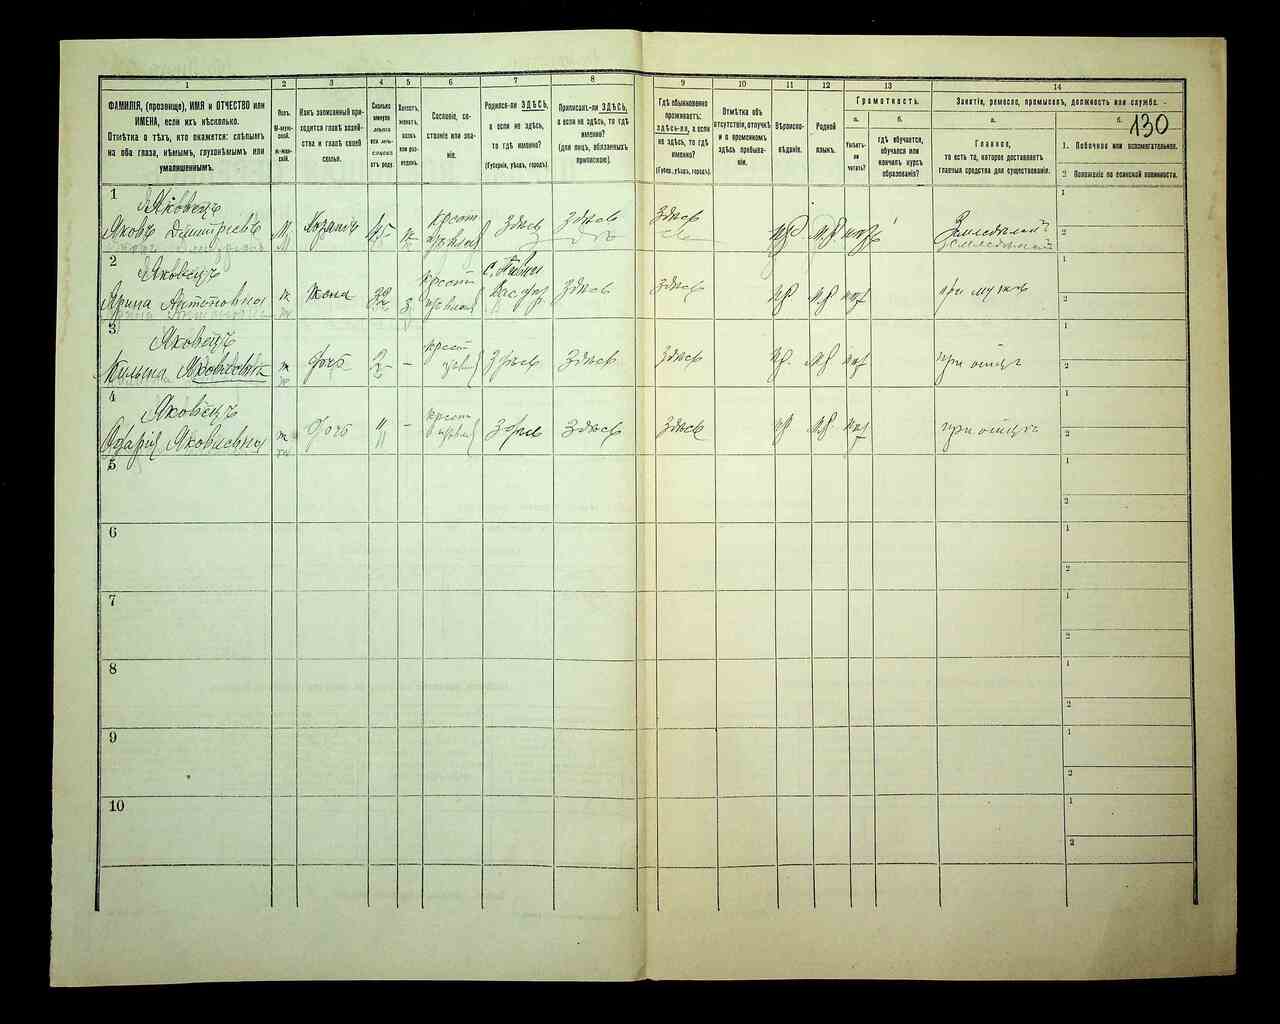 1
2
3
4
5
6
7
8
9
10
11
12
13
14
ФАМИЛІЯ, (прозвище), ИМЯ и ОТЧЕСТВО или
ИМЕНА, если ихъ нѣсколько.
Отмѣтка о тѣхъ, кто окажется: слѣпымъ
на оба глаза, нѣмымъ, глухонѣмымъ или
умалишеннымъ.
Полъ.
М-муж-
ской.
ж-жен-
скій.
Какъ записанный при-
ходится главѣ хозяй-
ства и главѣ своей
семьи.
Сколько
минуло
лѣтъ
отъ роду.
Холостъ,
женатъ,
вдовъ
или раз-
веденъ.
Сословіе, со-
стояніе или зва-
ніе.
Родился-ли ЗДѢСЬ,
а если не здѣсь,
то гдѣ именно?
(Губернія, уѣздъ, городъ).
Приписанъ-ли ЗДѢСЬ,
а если не здѣсь, то гдѣ
именно?
(для лицъ, обязанныхъ
припискою).
Гдѣ обыкновенно
проживаетъ:
здѣсь-ли, а если
не здѣсь, то гдѣ
именно?
(Губер., уѣздъ, городъ).
Отмѣтка объ
отсутствіи, отлучкѣ
и о временномъ
здѣсь пребыва-
ніи.
Вѣроиспо-
вѣданіе.
Родной
языкъ.
Грамотность.
а.
Умѣетъ-
ли
читать?
б.
гдѣ обучается,
обучался или
кончилъ курсъ
образованія?
Занятіе, ремесло, промыселъ, должность или служба.
130
а.
Главное,
то есть то, которое доставляетъ
главныя средства для существованія.
б.
1. Побочное или вспомогательное.
2 Положеніе по воинской повинности.
1
Яковецъ
Яковъ Димитріевъ
М
Хозяинъ
45
крест
Здѣсь
Здѣсь
Здѣсь
пр
М.р.
нѣт
Земледѣлецъ
1
2
2
Яковецъ
Ярина Антоновна
ж
жена
з
крест
Здѣсь
Здѣсь
пр
мр
нѣт
при мужѣ
1
2
3
Яковецъ
Яковлевна
ж
дочь
2
–
крест
Здѣсь
Здѣсь
Здѣсь
пр.
мр
нѣт
при отцѣ
1
2
4
Яковецъ
Дарія Яковлевна
ж
дочь
"
–
крест
Здѣсь
Здѣсь
Здѣсь
пр
м.р.
нѣт
при отцѣ
1
2
5
1
2
6
1
2
7
1
2
8
1
2
9
1
2
10
1
2